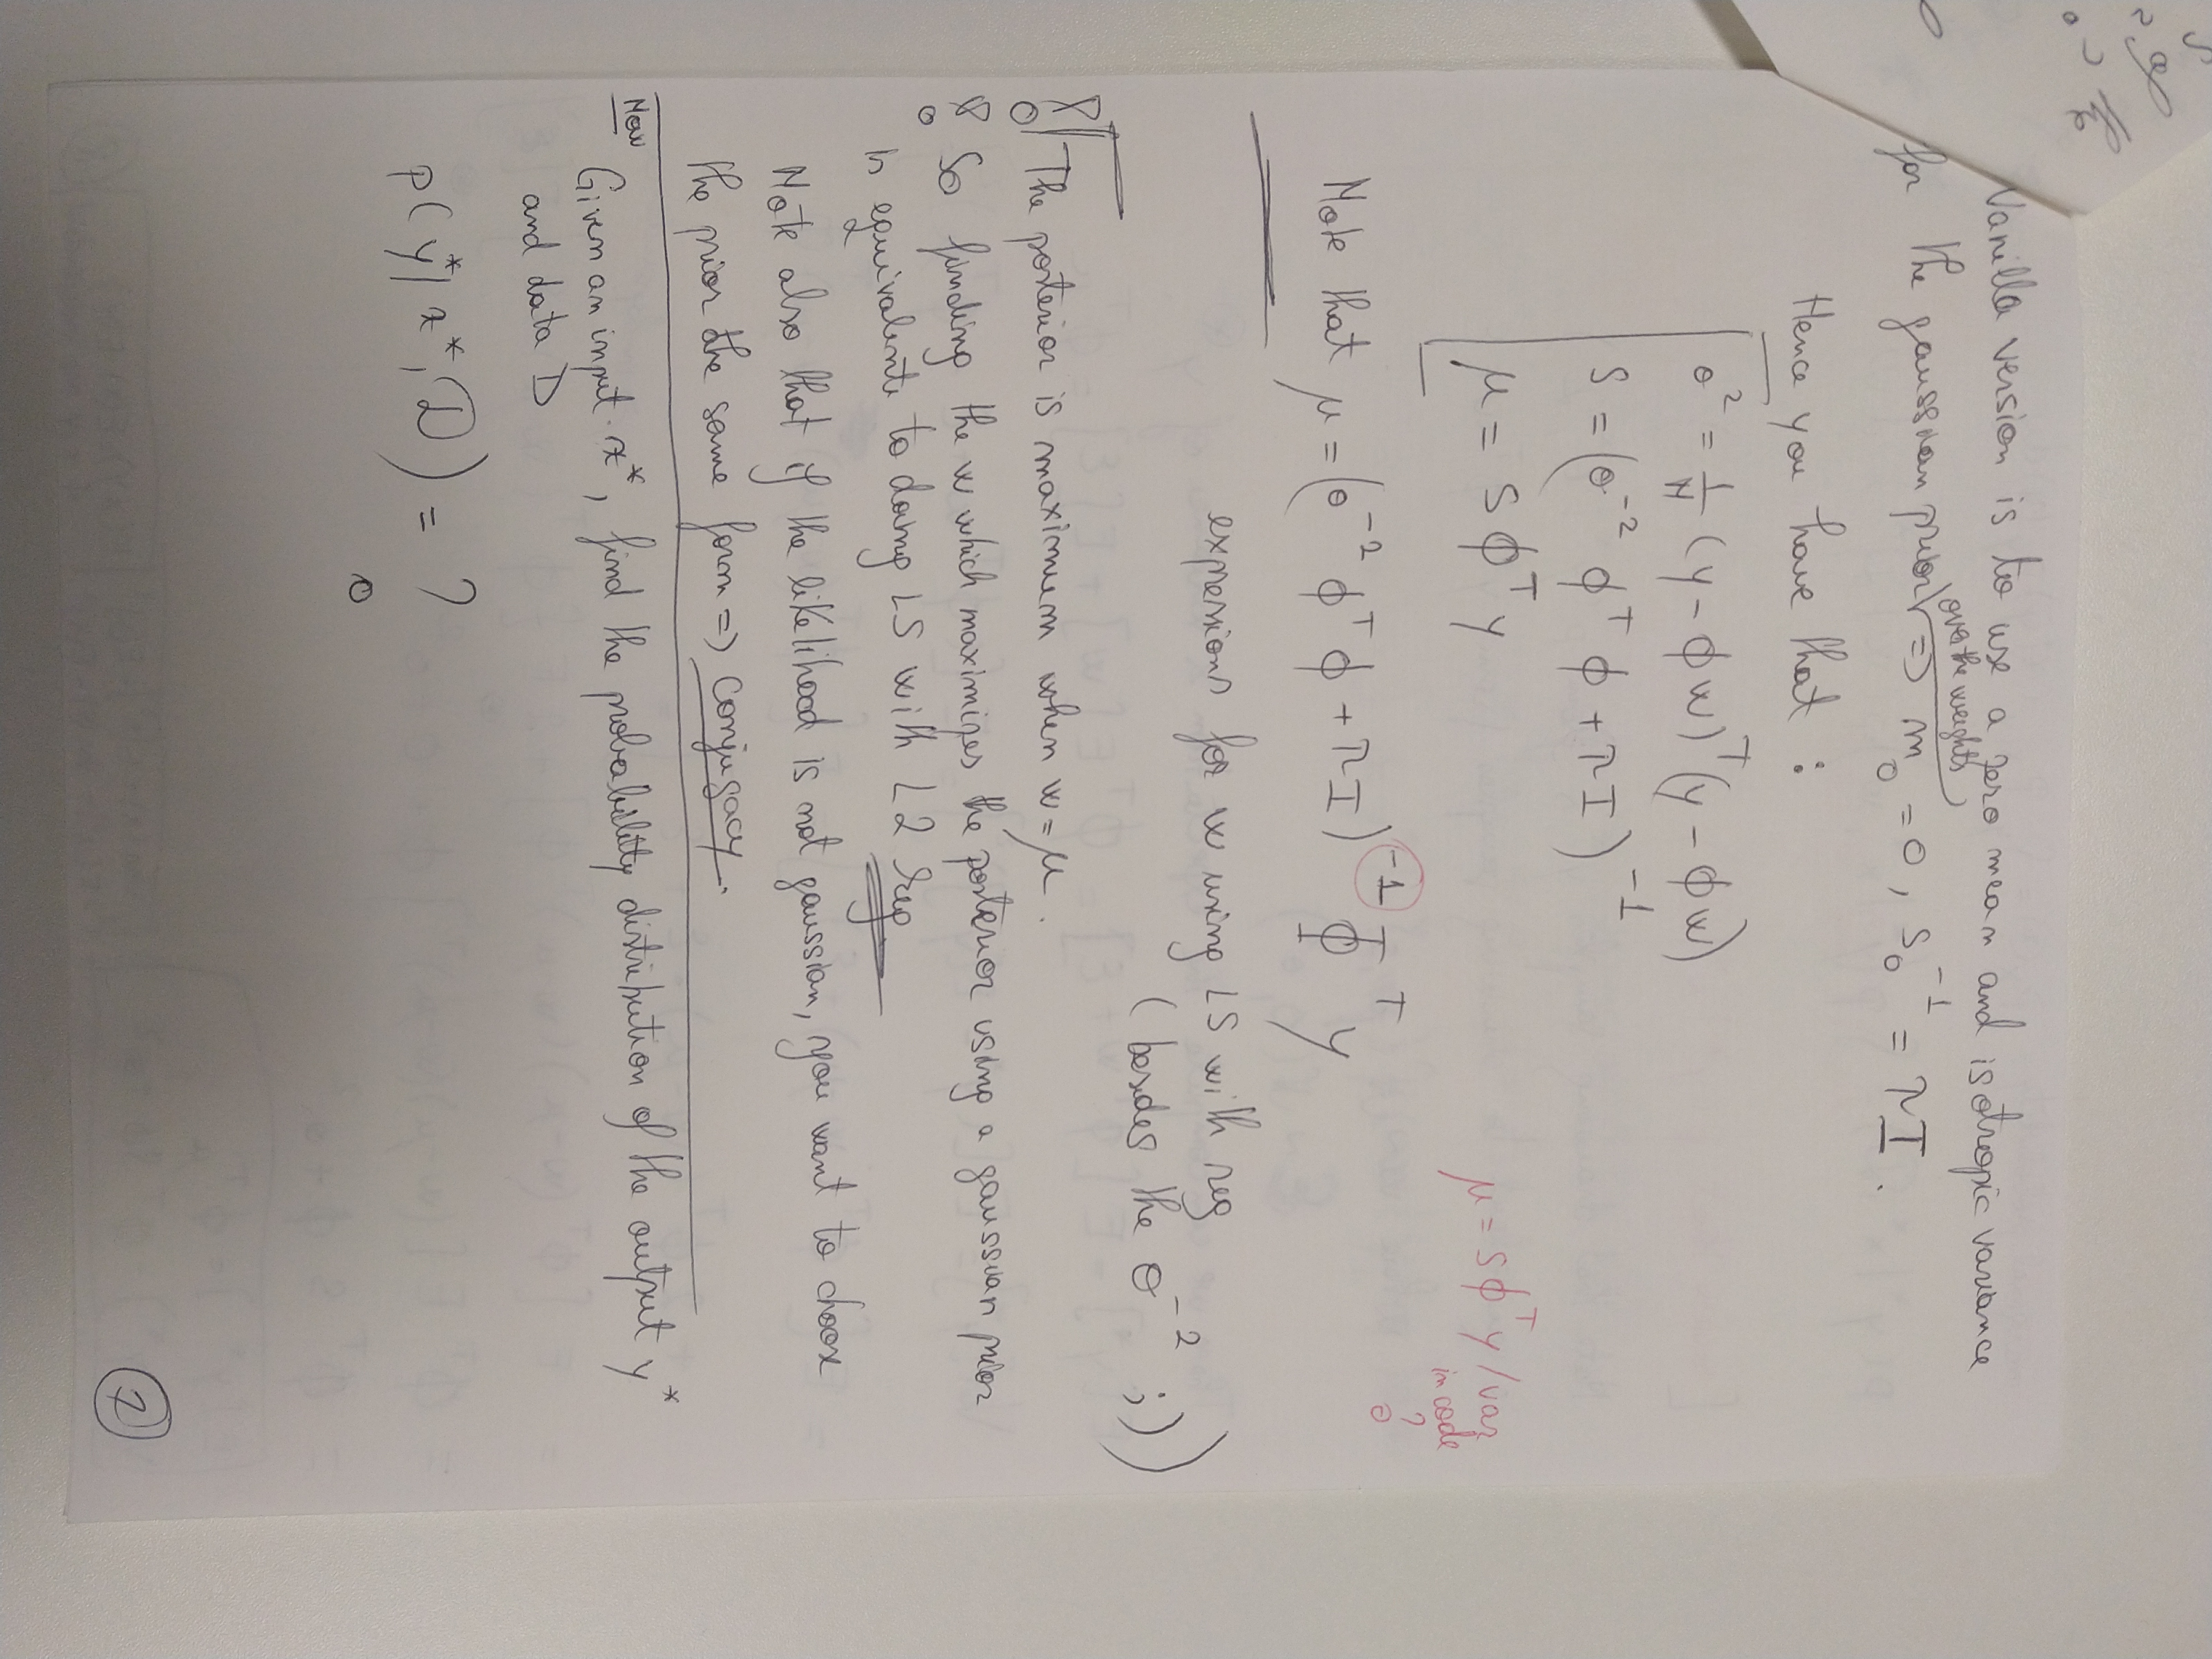 of
the
Vanilla version is to use a zero mean and isotropic variance
over the weights
for the gaussian prior => m₀ = 0, S₀⁻¹ = λI.
Hence you have that :
σ² = 1/N (y - ϕw)ᵀ(y - ϕw)
S = (σ⁻² ϕᵀ ϕ + λI)⁻¹
μ = S ϕᵀ y
μ = S ϕᵀ y / var
in code
?
Note that μ = (σ⁻² ϕᵀ ϕ + λI)⁻¹ Φᵀ y
expressions for w using LS with reg
(besides the σ⁻² ;))
The posterior is maximum when w = μ.
So finding the w which maximizes the posterior using a gaussian prior
is equivalent to doing LS with L2 reg.
Note also that if the likelihood is not gaussian, you want to choose
the prior the same form => conjugacy.
Now
Given an input x*, find the probability distribution of the output y*
and data D
p(y*| x*, D) = ?
7